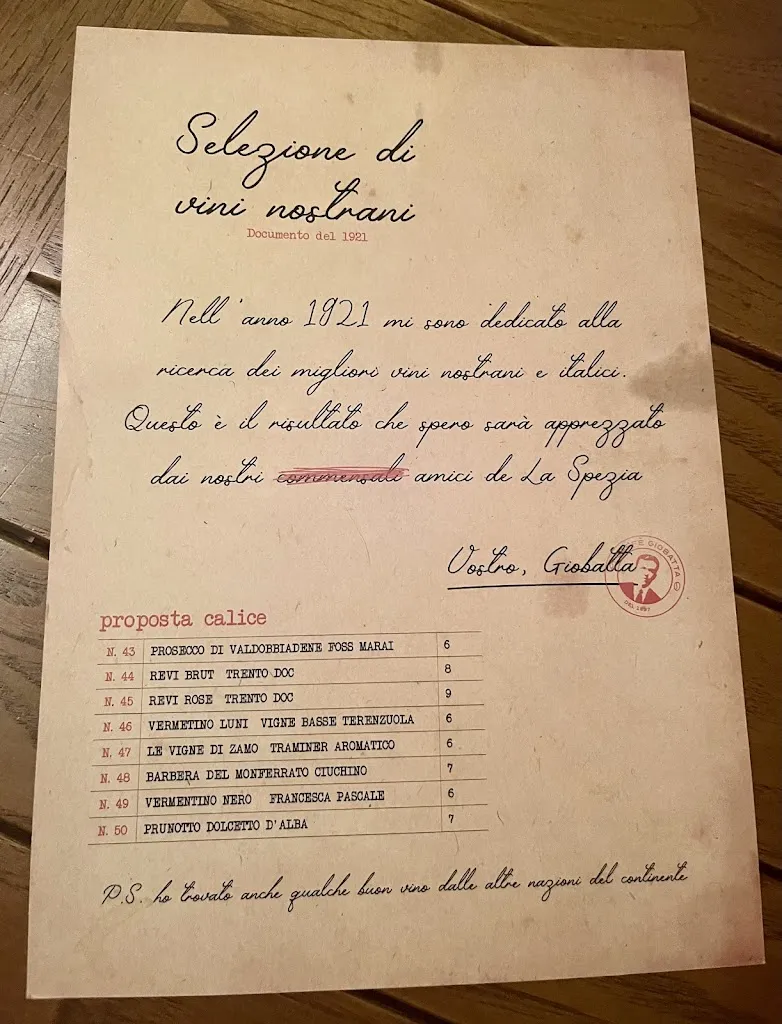 Selezione di
vini nostrani
Documento del 1921
Nell'anno 1921 mi sono dedicato alla
ricerca dei migliori vini nostrani e italici.
Questo è il risultato che spero sarà apprezzato
dai nostri commensali amici de La Spezia
Vostro, Giobatta
GIOBATTA
DEL 1887
proposta calice
N. 43 PROSECCO DI VALDOBBIADENE FOSS MARAI 6
N. 44 REVI BRUT TRENTO DOC 8
N. 45 REVI ROSE TRENTO DOC 9
N. 46 VERMETINO LUNI VIGNE BASSE TERENZUOLA 6
N. 47 LE VIGNE DI ZAMO TRAMINER AROMATICO 6
N. 48 BARBERA DEL MONFERRATO CIUCHINO 7
N. 49 VERMENTINO NERO FRANCESCA PASCALE 6
N. 50 PRUNOTTO DOLCETTO D'ALBA 7
P.S. ho trovato anche qualche buon vino dalle altre nazioni del continente